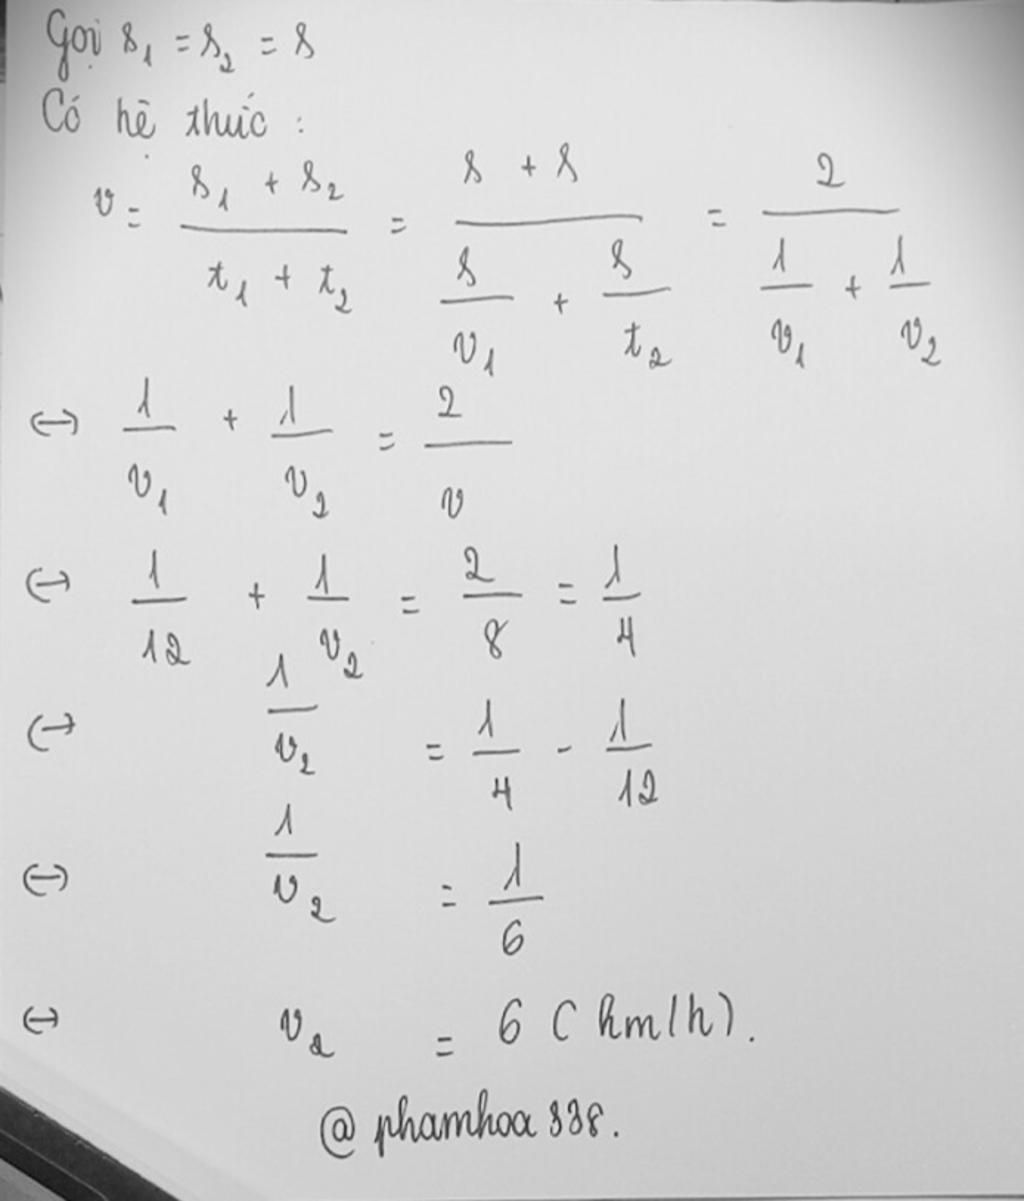 Gọi s₁ = s₂ = s
Có hệ thức :
v = (s₁ + s₂)/(t₁ + t₂) = (s + s)/(s/v₁ + s/t₂) = 2/(1/v₁ + 1/v₂)
↔ 1/v₁ + 1/v₂ = 2/v
↔ 1/12 + 1/v₂ = 2/8 = 1/4
↔ 1/v₂ = 1/4 - 1/12
↔ 1/v₂ = 1/6
↔ v₂ = 6 (km/h).
@ phamhoa 338.